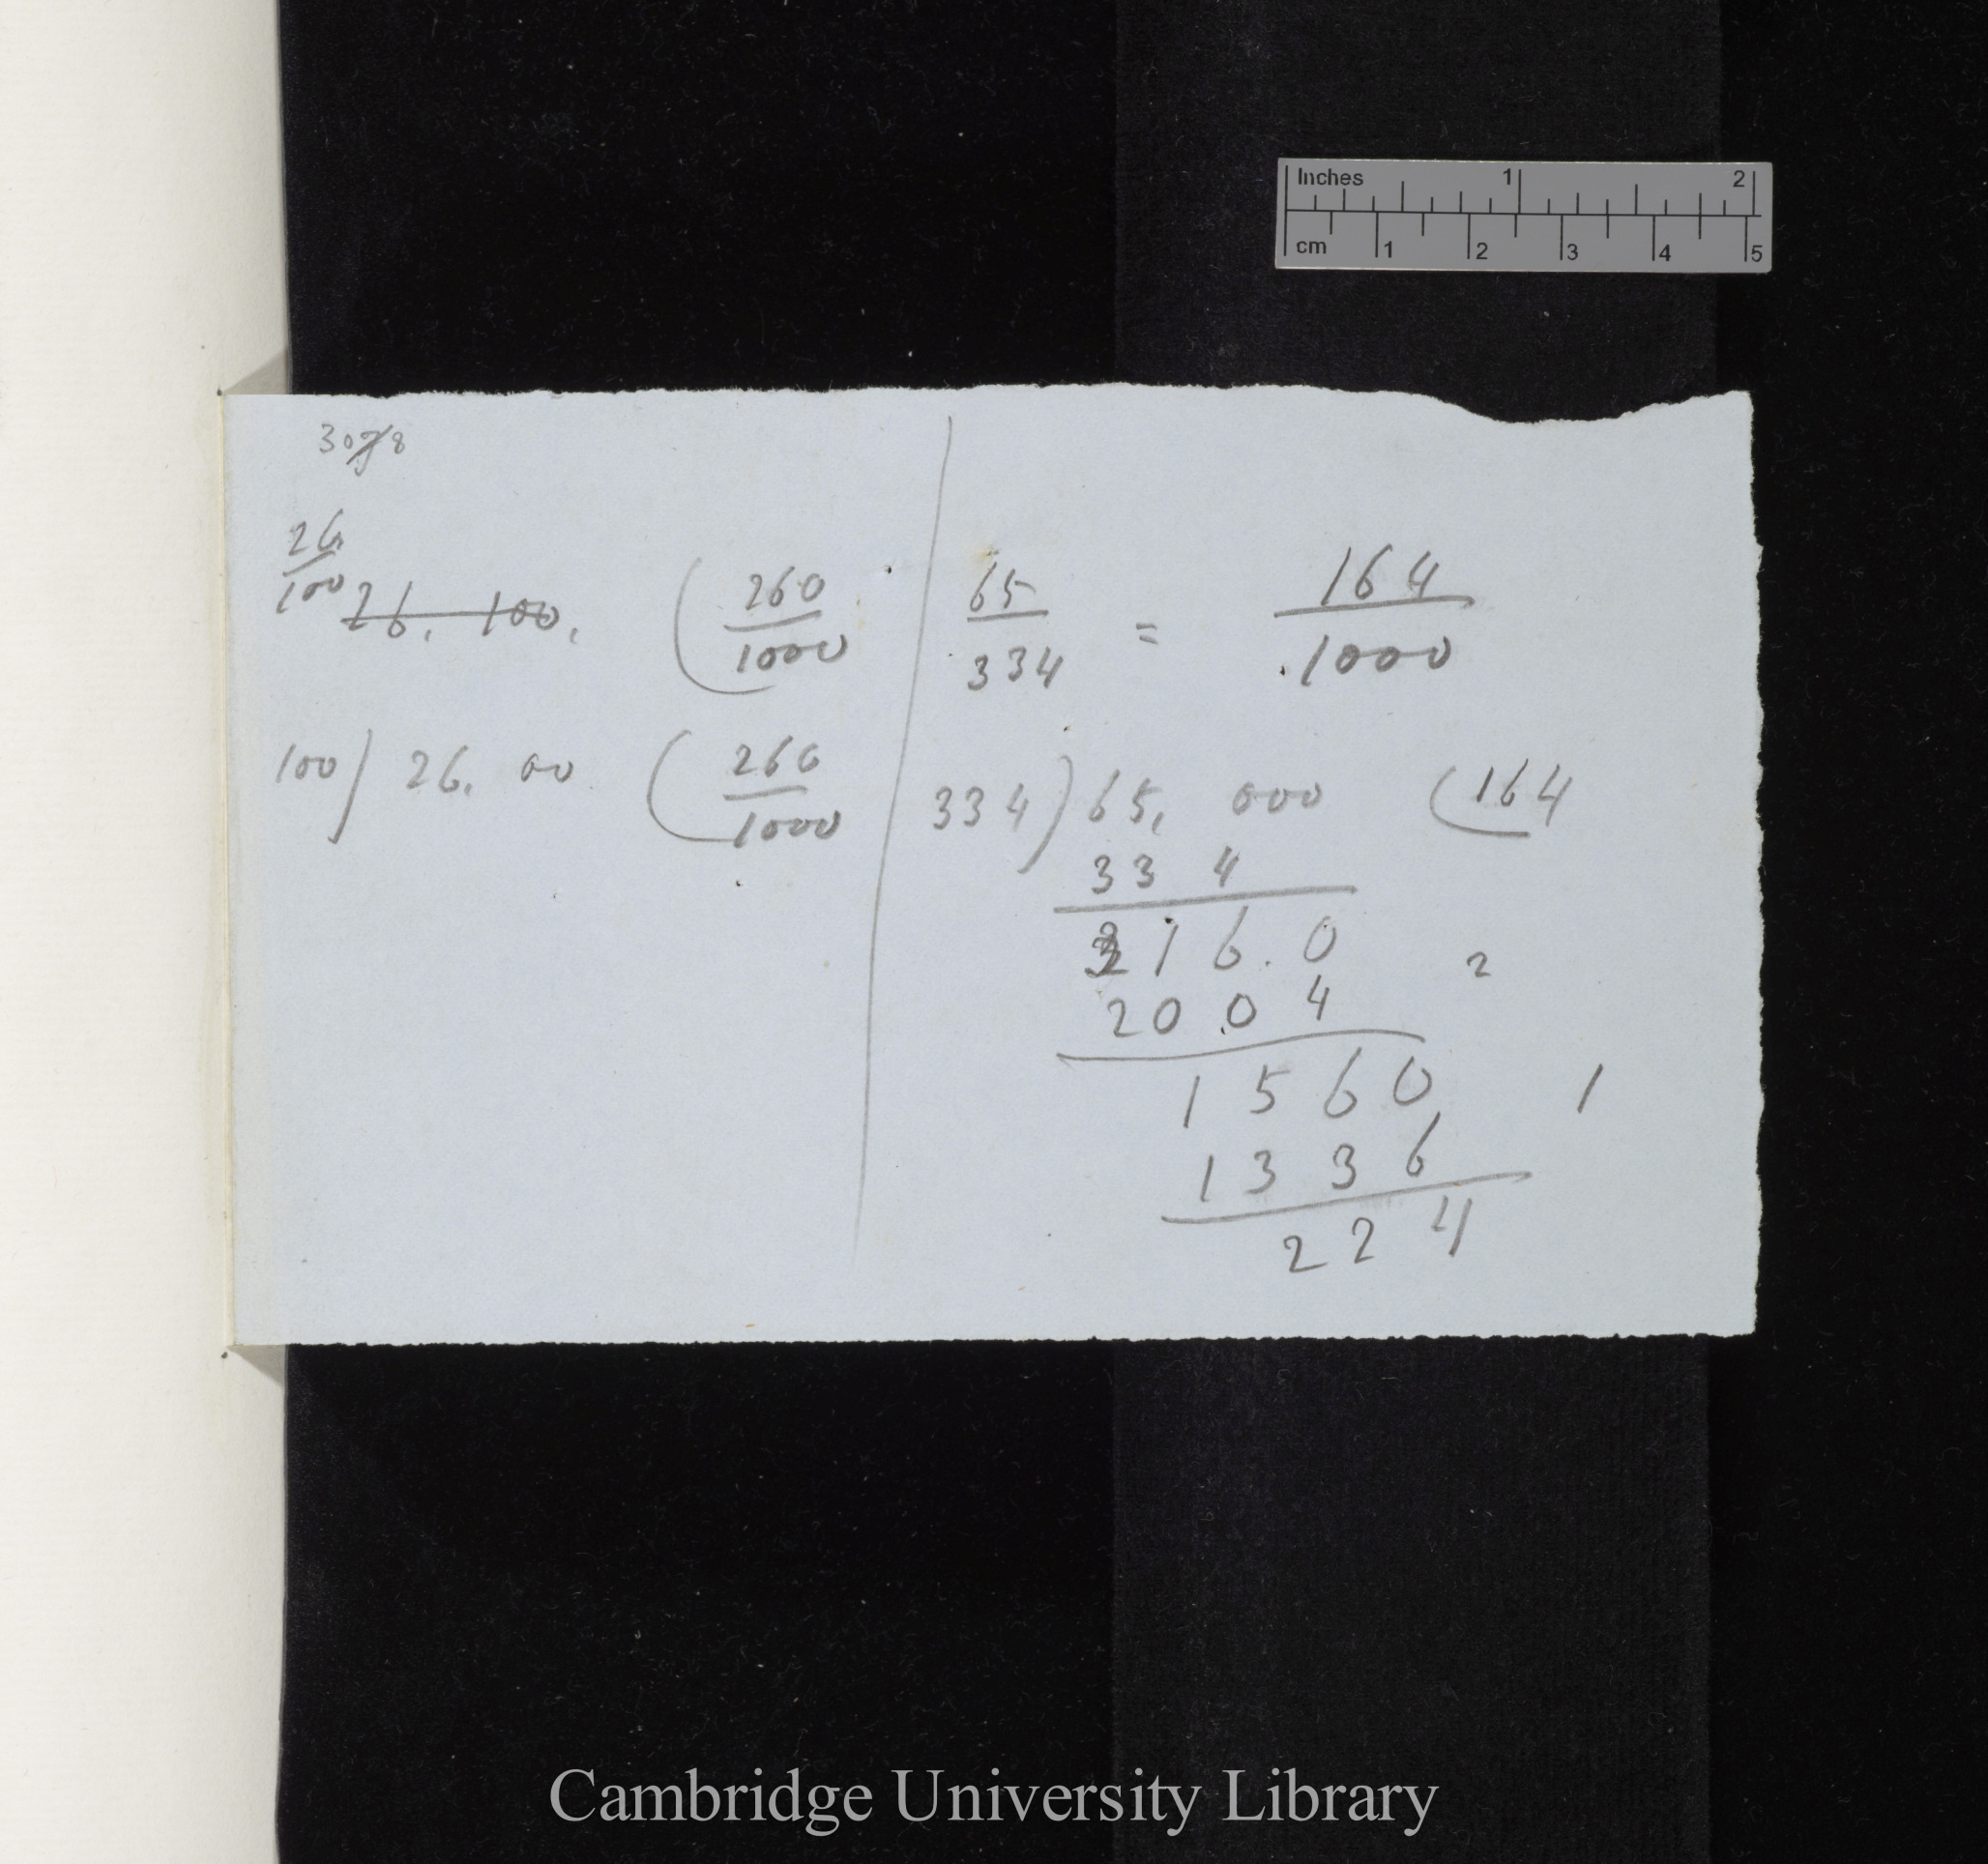 Inches 1 2
cm 1 2 3 4 5
308
26
100
26. 100.
260
1000
100) 26. 00 (260
1000
65
334
=
164
1000
334) 65, 000 (164
33 4
216.0 2
200 4
1560, 1
1336
224
Cambridge University Library